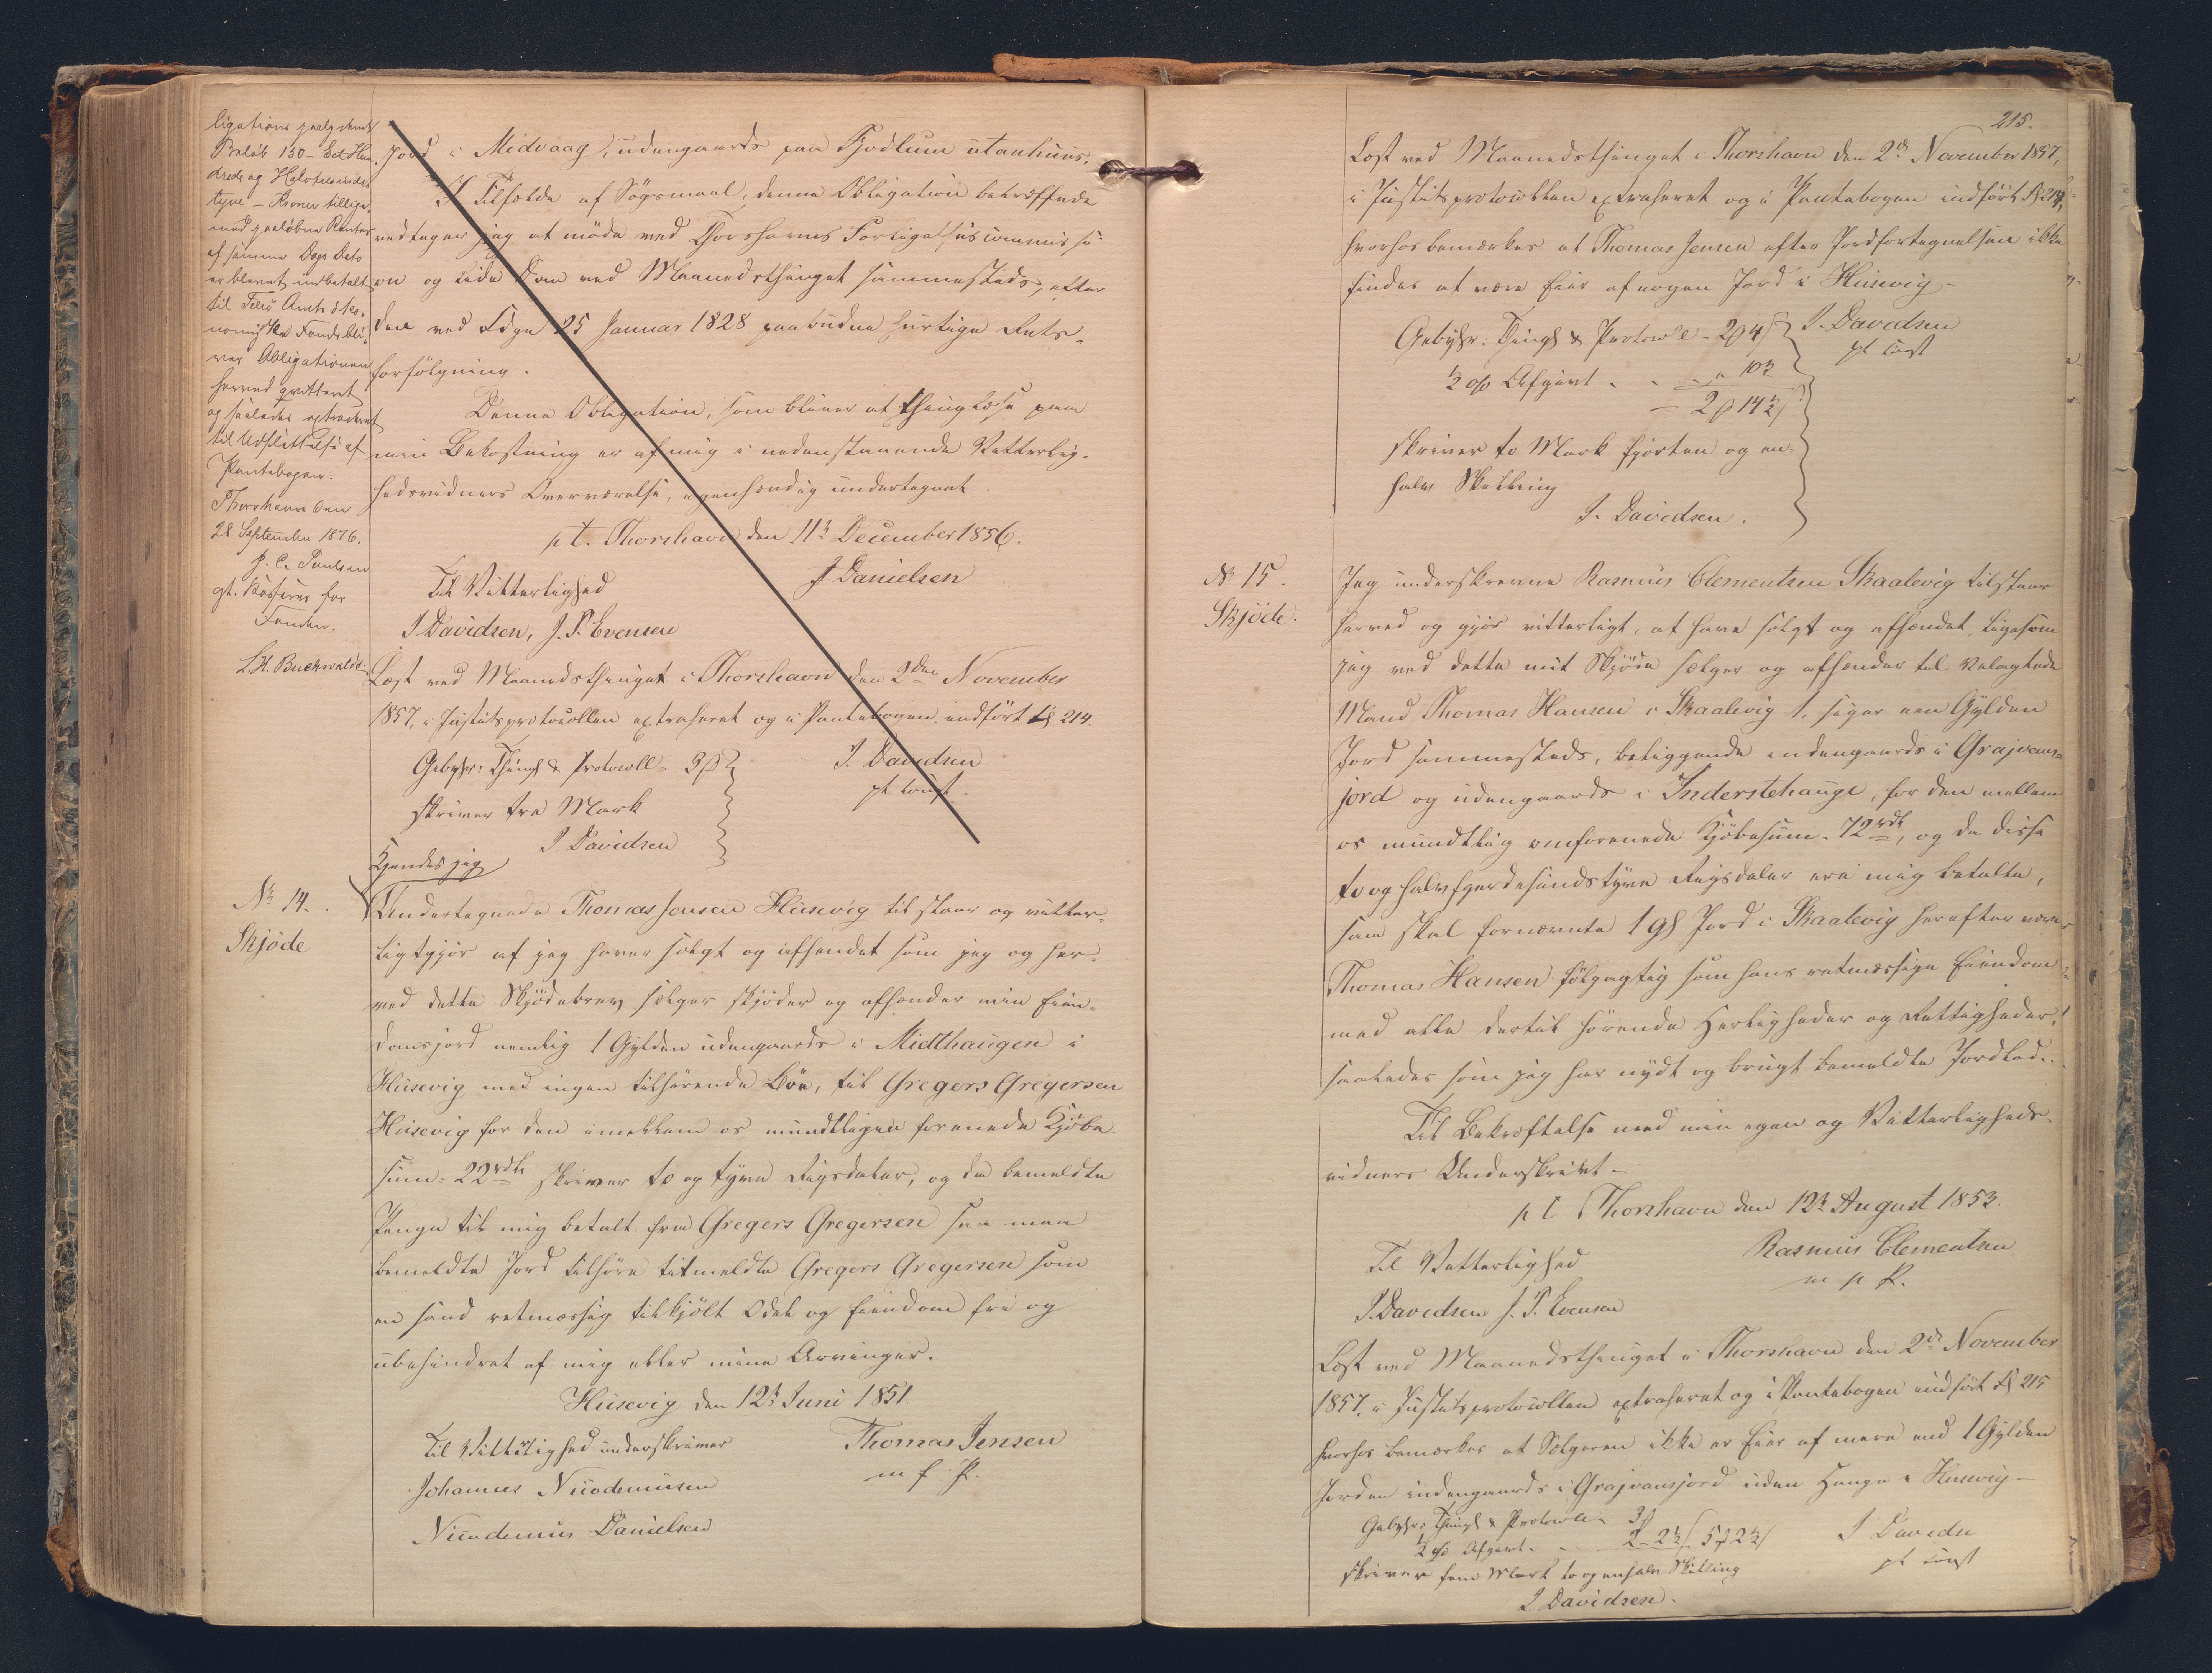 ligations paalydende
Beløb 150 - Eet Hun-
drede og Halvtresindst
tyve - Kroner tillige-
med paaløbne Renter
af samme Dags Dato
er blevet indbetalt
til Færø Amts öko-
nomiske Fond, bli-
ver Obligationen
herved qvitteret
og saaledes extraderet
til Udslettelse af
Pantebogen.
Thorshavn den
28 September 1876.
J. C. Poulsen
gt. Kasserer for
Fonden.
L. H. Buchwaldt
Jord i Midvaag, udengaards paa Fjodlum utanhuus.
I Tilfælde af Søgsmaal, denne Obligation betræffende
vedtager jeg at møde ved Thorshavns Forligelsescommissi-
on og lide Dom ved Maanedsthinget sammesteds, efter
den ved Lögn 25 Januar 1828 paabudne hurtige Rets-
forfölgning.
Denne Obligation, som bliver at thinglæse paa
min Bekostning er af mig i nedenstaaende Vitterlig-
hedsvidners Overværelse, egenhændig undertegnet.
pt. Thorshavn den 11te December 1856.
Til Vitterlighed
J Danielsen
J Davidsen, J. P. Evensen
Læst ved Maanedsthinget i Thorshavn den 2den November
1857, i Justitsprotocollen extraheret og i Pantebogen indført fol 214.
Gebyhr: Thingl & Protocoll = 3 ß
J. Davidsen
skriver tre Mark
pt const.
J Davidsen
Kjendes jeg
No 14.
Skjöde
Undertegnede Thomas Jensen Húsevig tilstaar og vitter-
ligtgjör at jeg haver solgt og afhendet som jeg og her-
ved dette Skjödebrev sælger skjöder og afhænder min Eien-
domsjord nemlig 1 Gylden udengaards i Midthaugen i
Húsevig med ingen tilhörende Böe, til Gregers Gregersen
Húsevig for den imellem os mundtligen forenede Kjöbe-
sum = 22 rdl skriver to og tyve Rigsdaler, og da bemeldte
Penge til mig betalt fra Gregers Gregersen saa maa
bemeldte Jord tilhöre titmeldte Gregers Gregersen som
en sand retmæssig tilkjöbt Odel og Eiendom fri og
ubehindret af mig eller mine Arvinger.
Húsevig den 12te Juni 1851.
Til Vitterlighed underskriver
Thomas Jensen
Johannes Nicodemusen
m f. P.
Nicodemus Danielsen
215.
Læst ved Maanedsthinget i Thorshavn den 2de November 1857,
i Justitsprotocollen extraheret og i Pantebogen indfört fol 214,
hvorhos bemærkes at Thomas Jensen efter Jordfortegnelsen ikke
findes at være Eier af nogen Jord i Húsevig -
Gebyhr: Thingl & Protocol - 2 ß 4 ß
J. Davidsen
pt const
½ % Afgivt - - - " 10½
= 2 ß 14½ ß
skriver to Mark fjorten og en-
halv Skilling
J. Davidsen.
No 15.
Skjöde.
Jeg underskrevne Rasmus Clementsen Skaalevig tilstaar
herved og gjör vitterligt, at have solgt og afhændet, ligesom
jeg ved dette mit Skjöde sælger og afhænder til velagtede
Mand Thomas Hansen i Skaalevig 1, siger een Gylden
Jord sammesteds, beliggende indengaards i Grajvans-
jord og udengaards i Inderstehauge, for den mellem
os mundtlig omforenede Kjöbesum 72 rdl, og da disse
to og halvfjerdesindstyve Rigsdaler ere mig betalte,
saa skal fornævnte 1 Gl Jord i Skaalevig herefter være
Thomas Hansen fölgagtig som hans retmæssige Eiendom
med alle dertil hörende Herligheder og Rettigheder,
saaledes som jeg har nydt og brugt bemeldte Jordlod.
Til Bekræftelse med min egen og Vitterligheds-
vidners Underskrivt -
p t Thorshavn den 12te August 1853.
Til Vitterlighed
Rasmus Clementsen
m p P.
J. Davidsen J. P. Evensen
Læst ved Maanedsthinget i Thorshavn den 2de November
1857, i Justitsprotocollen extraheret og i Pantebogen indfört fol 215
hvorhos bemærkes at Sælgeren ikke er Eier af mere end 1 Gylden
Jorden indengaards i Grajvansjord uden Hauge i Husevig -
Gebyhr: Thingl & Protocoll - 3 ß
½ % Afgivt - - 2 - 2½ ß 5 ß 2½ ß
J Davidsen
pt const
skriver fem Mark to og enhalv Skilling
J Davidsen.